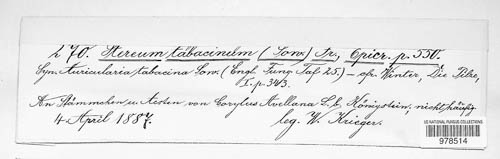 270. Stereum tabacinum (Sow.) Fr., Epicr. p. 550.
Syn. Auricularia tabacina Sow. (Engl. Fung. Taf 25.) – cfr. Winter, Die Pilze,
I. p. 343.
An Stämmchen u. Aesten von Corylus Avellana L. b. Königstein, nicht häufig.
4 April 1887. leg. W. Krieger.
US NATIONAL FUNGUS COLLECTIONS
978514